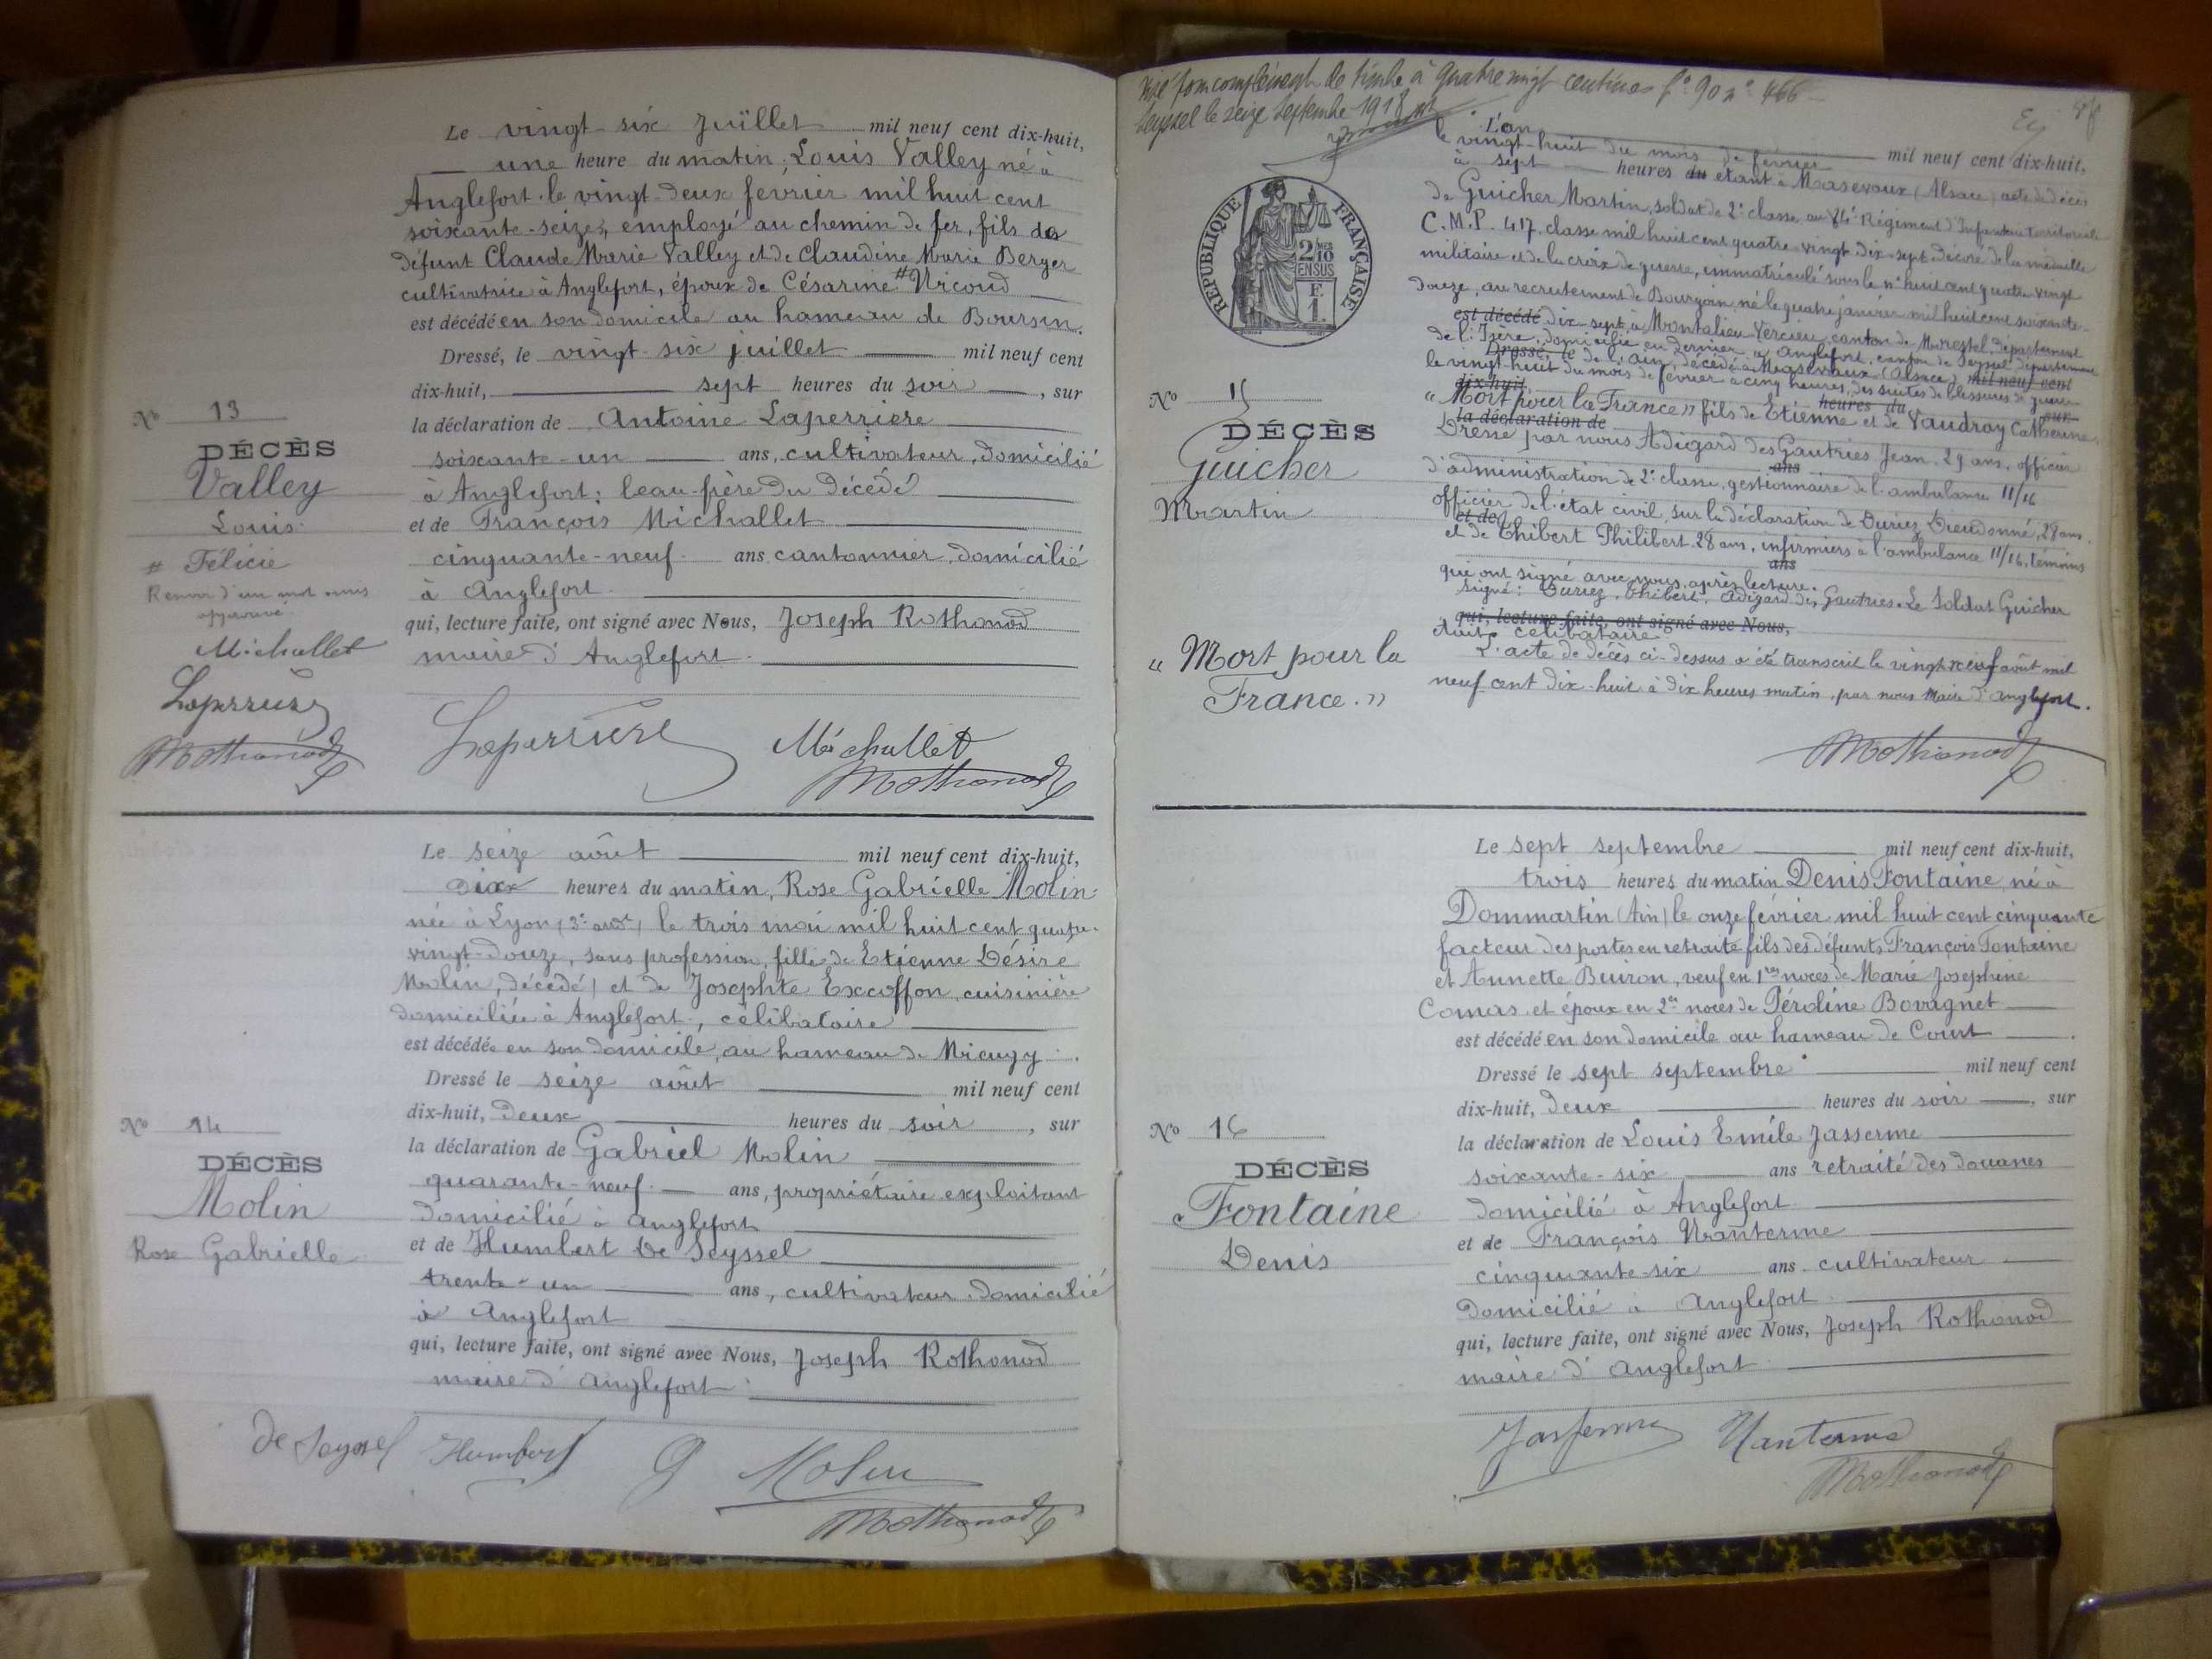 Le vingt-six Juillet mil neuf cent dix-huit,
une heure du matin, Louis Valley né à
Anglefort le vingt-deux février mil huit cent
soixante-seize, employé au chemin de fer, fils de
défunt Claude Marie Valley et de Claudine Marie Berger
cultivatrice à Anglefort, époux de Césarine # Nicoud
est décédé en son domicile au hameau de Boursin.
Dressé, le vingt-six juillet mil neuf cent
dix-huit, sept heures du soir, sur
la déclaration de Antoine Laperrière
soixante-un ans, cultivateur, domicilié
à Anglefort; beau-père du décédé
et de François Michallet
cinquante-neuf ans cantonnier, domicilié
à Anglefort
qui, lecture faite, ont signé avec Nous, Joseph Rothonod
maire d'Anglefort
No 13
DÉCÈS
Valley
Louis
# Félicie
Renvoi d'un mot omis
approuvé
Michallet
Laperrière
JRothonod
Laperrière Michallet
JRothonod
Le seize août mil neuf cent dix-huit,
dix heures du matin, Rose Gabrielle Molin
née à Lyon (3e ardt) le trois mai mil huit cent quatre-
vingt-douze, sans profession, fille de Etienne Désiré
Molin, décédé, et de Josephte Excoffon, cuisinière
domiciliée à Anglefort, célibataire
est décédée en son domicile, au hameau de Mieugy.
Dressé le seize août mil neuf cent
dix-huit, deux heures du soir, sur
la déclaration de Gabriel Molin
quarante-neuf ans, propriétaire exploitant
domicilié à Anglefort
et de Humbert De Seyssel
trente-un ans, cultivateur domicilié
à Anglefort
qui, lecture faite, ont signé avec Nous, Joseph Rothonod
maire d'Anglefort
No 14
DÉCÈS
Molin
Rose Gabrielle
de Seyssel Humbert G Molin
JRothonod
Visé pour complément de timbre à quatre vingt centimes fo 90 no 466
Seyssel le seize Septembre 1918
RÉPUBLIQUE FRANÇAISE
2/10
EN SUS
F.
1.
L'an mil neuf cent dix-huit,
le vingt-huit du mois de février
à sept heures du étant à Masevaux (Alsace) acte de décès
de Guicher Martin, soldat de 2e classe au 84e Régiment d'Infanterie territoriale
C.M.P. 417, classe mil huit cent quatre-vingt-dix-sept décoré de la médaille
militaire et de la croix de guerre, immatriculé sous le no huit cent quatre vingt
douze, au recrutement de Bourgoin, né le quatre janvier mil huit cent soixante-
est décédé dix-sept, à Montalieu Vercieu, canton de Morestel, département
de l'Isère, domicilié en dernier à Anglefort, canton de Seyssel département
Dressé, le de l'Ain, décédé à Masevaux (Alsace) mil neuf cent
le vingt-huit du mois de février à cinq heures, des suites de blessures de guerre
dix-huit, heures du sur
"Mort pour la France" fils de Etienne et de Vaudray Catherine.
la déclaration de
Dressé par nous Adigard des Gautries Jean, 29 ans, officier
ans
d'administration de 2e classe, gestionnaire de l'ambulance 11/16
officier de l'état civil, sur la déclaration de Duriez Dieudonné, 28 ans.
et de
et de Thibert Philibert 28 ans, infirmiers à l'ambulance 11/16, témoins
ans
qui ont signé avec nous, après lecture.
Signé: Duriez, Thibert, Adigard des Gautries. Le Soldat Guicher
qui, lecture faite, ont signé avec Nous,
était célibataire
L'acte de décès ci-dessus a été transcrit le vingt neuf août mil
neuf cent dix-huit à dix heures matin, par nous Maire d'Anglefort.
No 15
DÉCÈS
Guicher
Martin
"Mort pour la
France."
JRothonod
Le sept septembre mil neuf cent dix-huit,
trois heures du matin Denis Fontaine, né à
Dommartin (Ain) le onze février mil huit cent cinquante
facteur des postes en retraite fils des défunts François Fontaine
et Annette Buiron, veuf en 1res noces de Marie Josephine
Comas et époux en 2es noces de Péroline Bovagnet
est décédé en son domicile au hameau de Court
Dressé le sept septembre mil neuf cent
dix-huit, deux heures du soir, sur
la déclaration de Louis Emile Jasserme
soixante-six ans retraité des douanes
domicilié à Anglefort
et de François Nanterme
cinquante-six ans cultivateur
domicilié à Anglefort
qui, lecture faite, ont signé avec Nous, Joseph Rothonod
maire d'Anglefort
No 16
DÉCÈS
Fontaine
Denis
Jasserme Nanterme
JRothonod